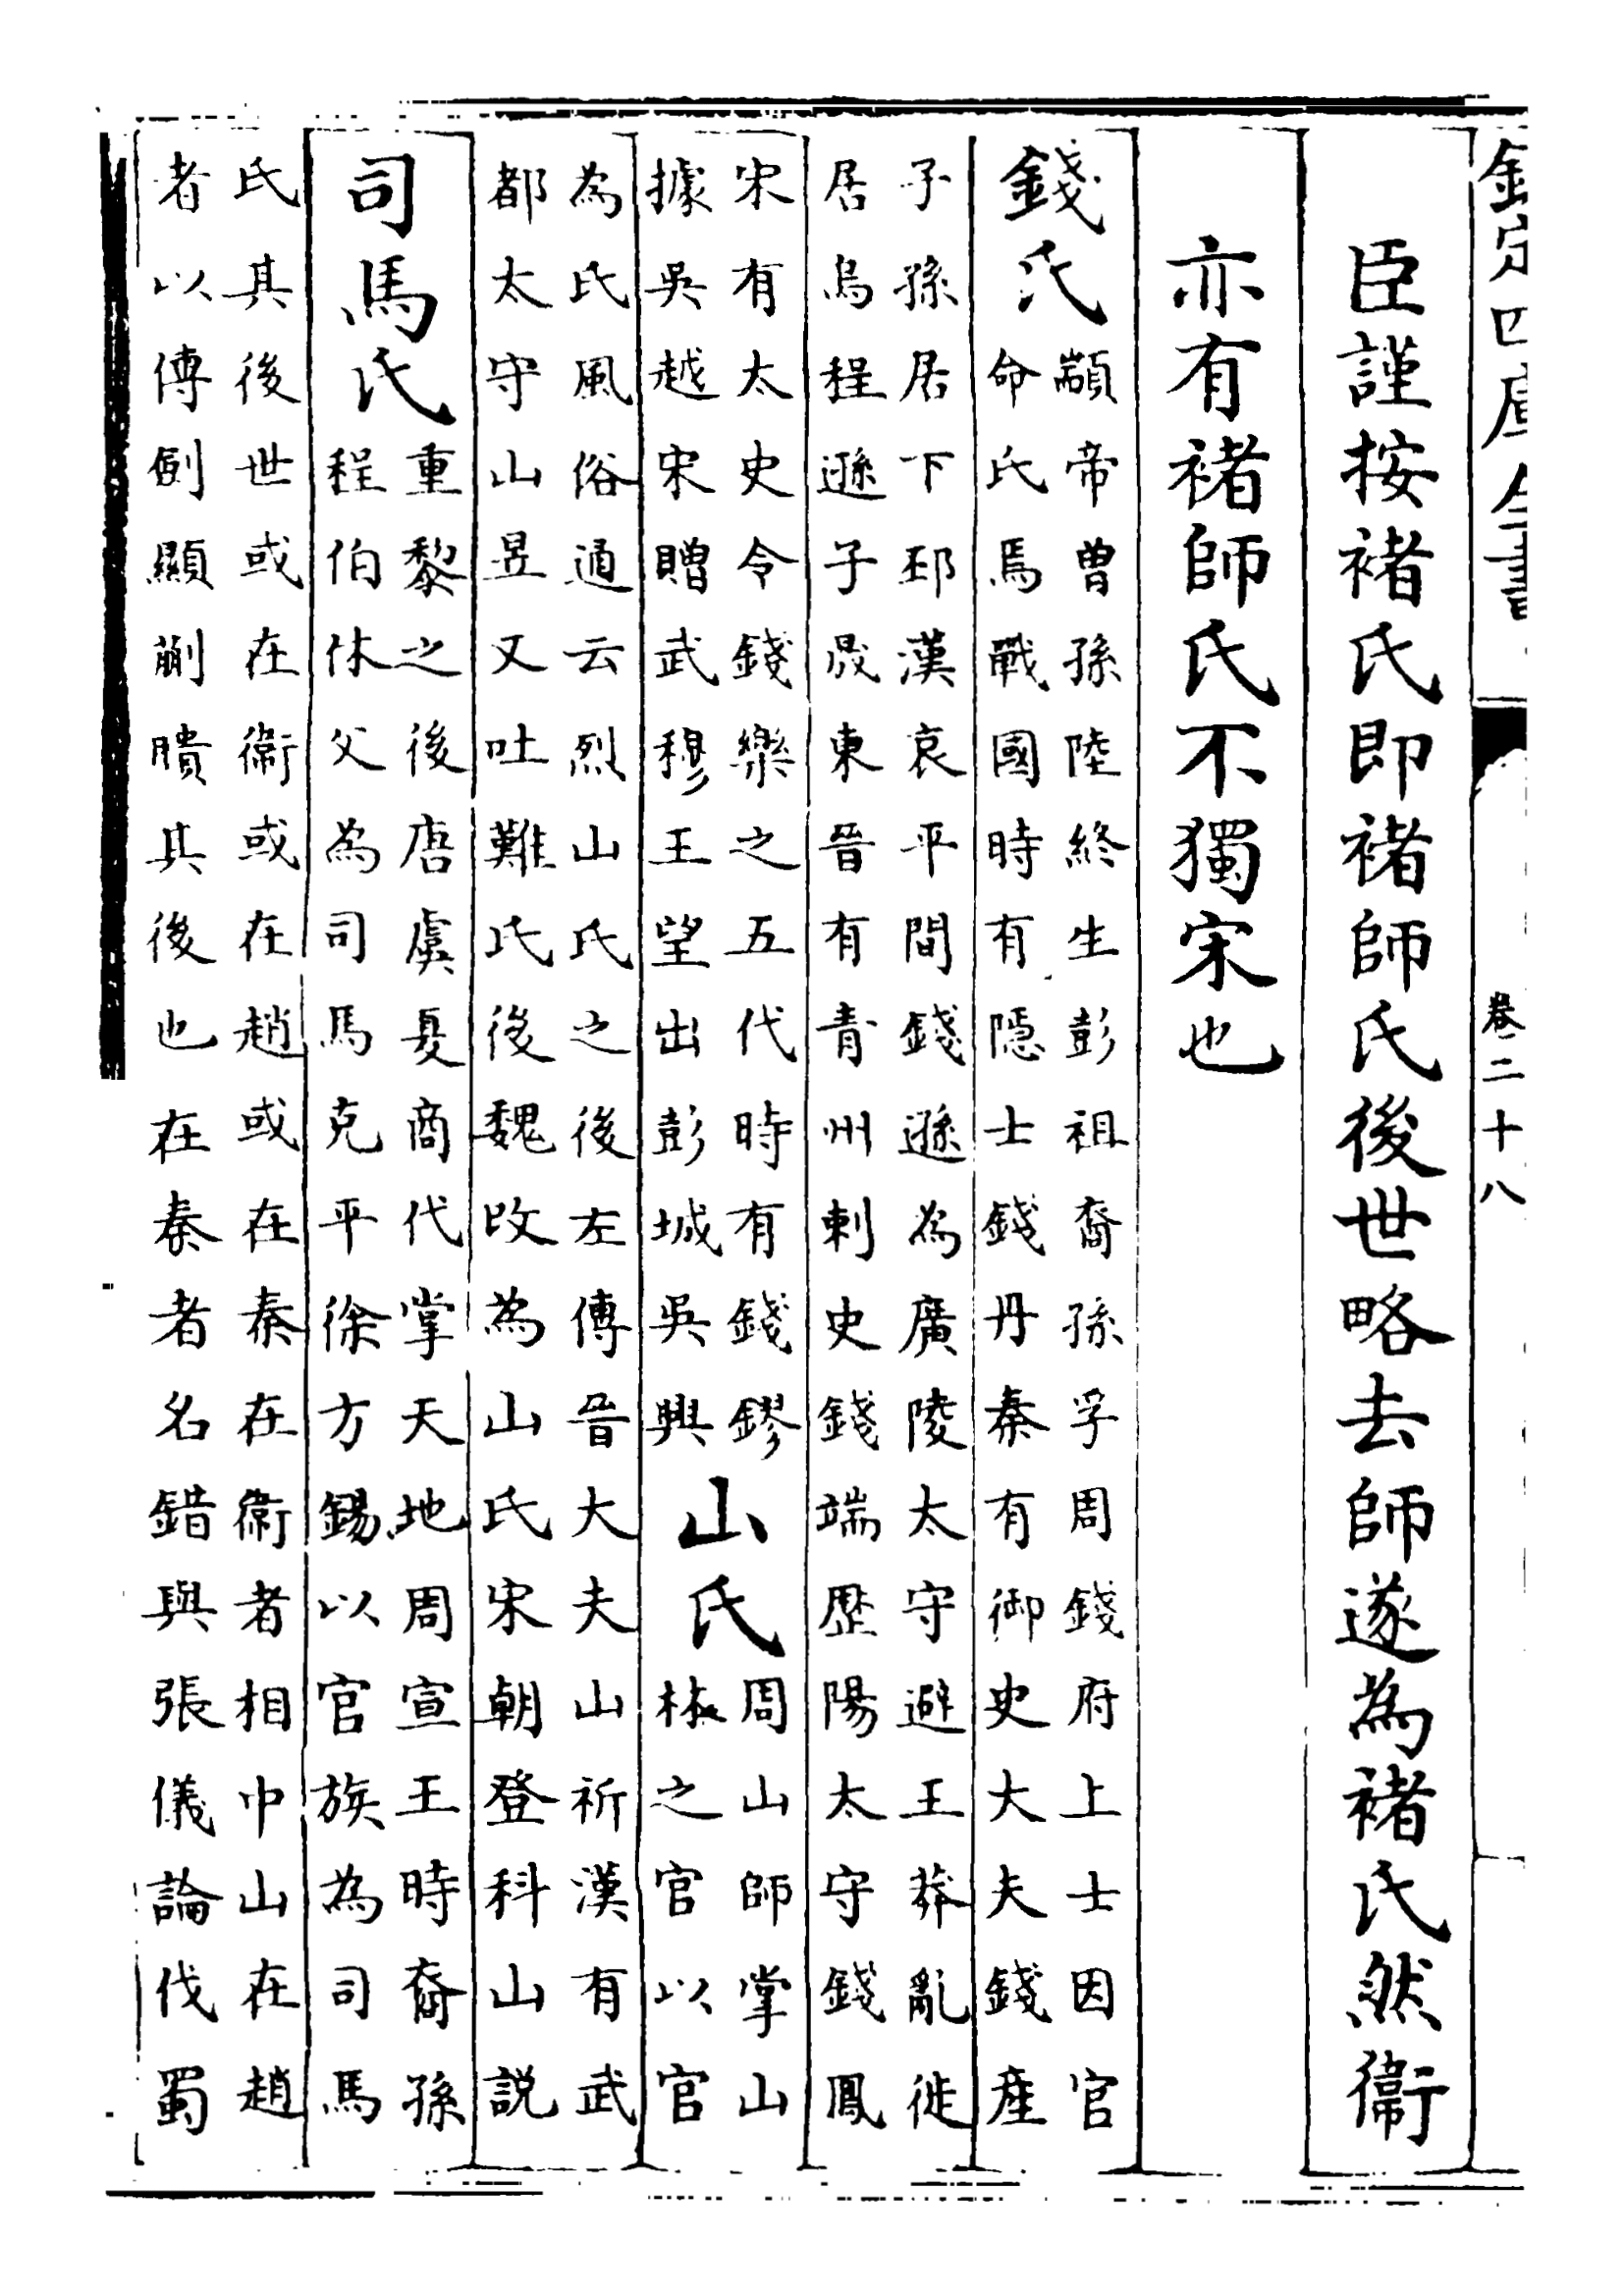 欽定四庫全書
卷二十八
臣謹按褚氏即褚師氏後世略去師遂為褚氏然衞
亦有褚師氏不獨宋也
錢氏
顓帝曽孫陸終生彭祖裔孫孚周錢府上士因官
命氏焉戰國時有隱士錢丹秦有御史大夫錢產
子孫居下邳漢哀平間錢遜為廣陵太守避王莽亂徙
居烏程遜子晟東晉有青州刺史錢端歴陽太守錢鳳
宋有太史令錢樂之五代時有錢鏐
據吳越宋贈武穆王望出彭城吳興
山氏
周山師掌山
林之官以官
為氏風俗通云烈山氏之後左傳晉大夫山祈漢有武
都太守山昱又吐難氏後魏改為山氏宋朝登科山説
司馬氏
重黎之後唐虞夏商代掌天地周宣王時裔孫
程伯休父為司馬克平徐方錫以官族為司馬
氏其後世或在衞或在趙或在秦在衞者相中山在趙
者以傳劒顯蒯聵其後也在秦者名錯與張儀論伐蜀